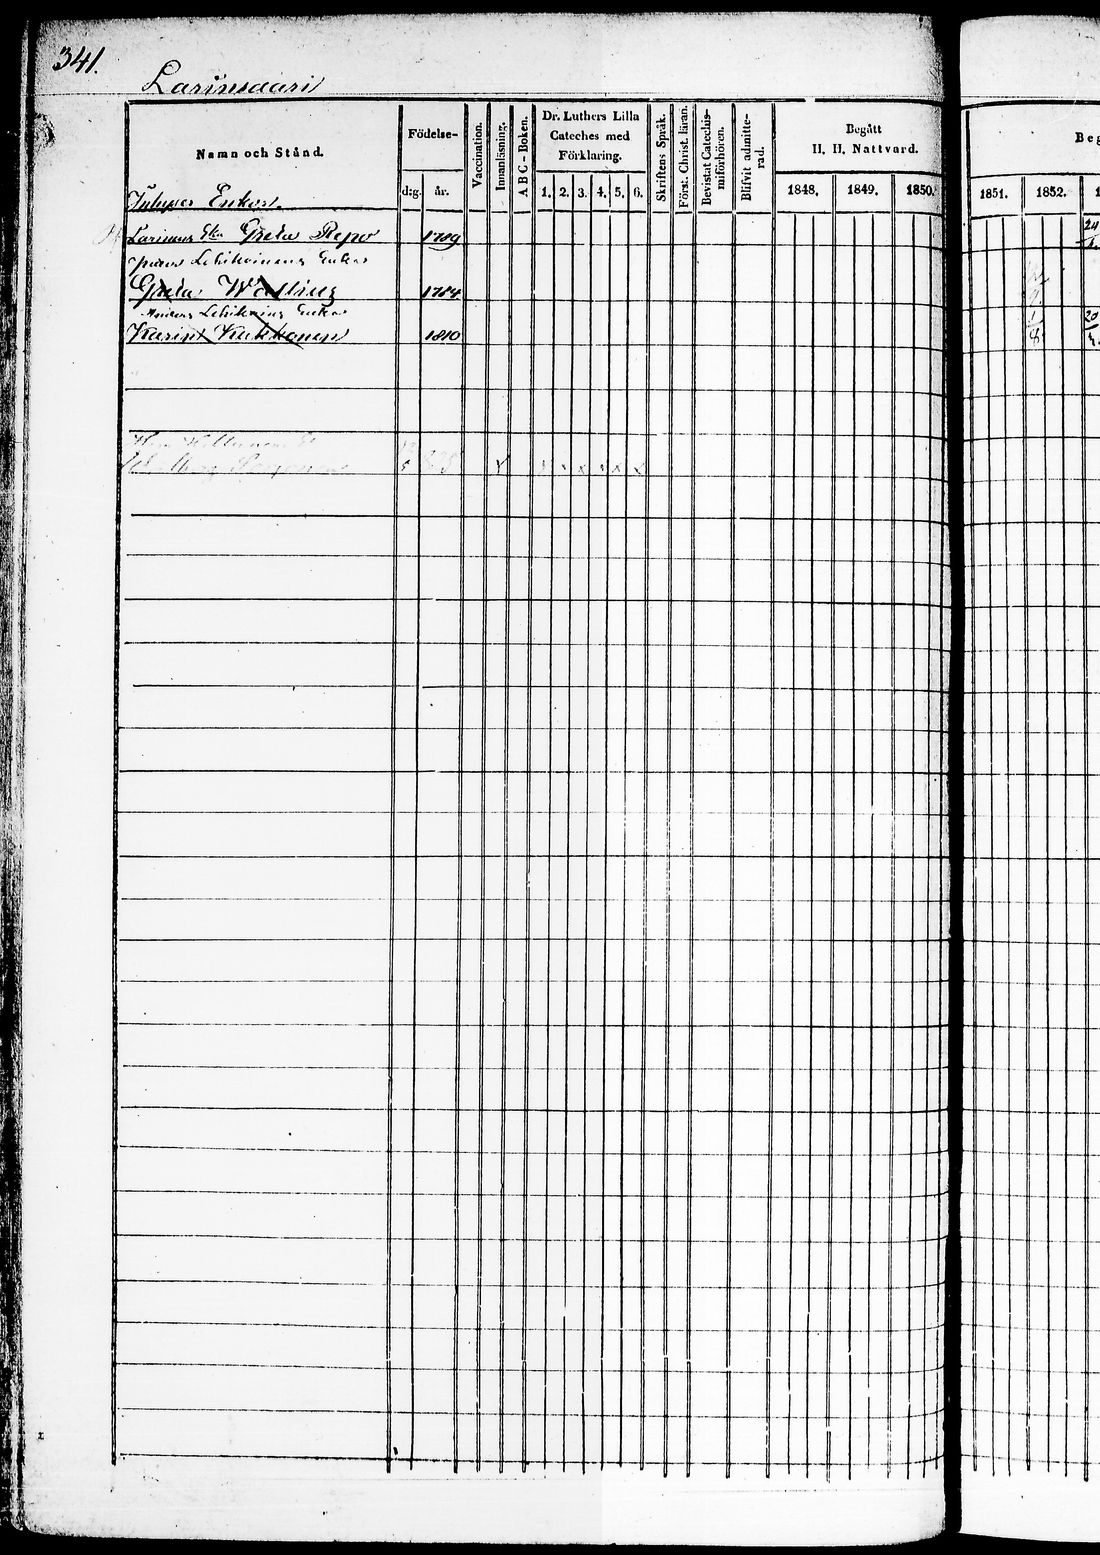 341.
Larinsaari
Namn och Stånd.
Födelse-
d:g. år.
Vaccination.
Innanläsning.
A B C - Boken.
Dr. Luthers Lilla
Cateches med
Förklaring.
1. 2. 3. 4. 5. 6.
Skriftens Språk.
Först. Christ. läran.
Bevistat Catechis-
miförhören.
Blifvit admitte-
rad.
Begått
H. H. Nattvard.
1848. 1849. 1850.
1851. 1852.
Enkor.
Larinens Eka Greta Repo 1789
Lehikoinens Enka
Greta 1784
Anders Lehikoinens Enka
Karin Kukkonen 1810